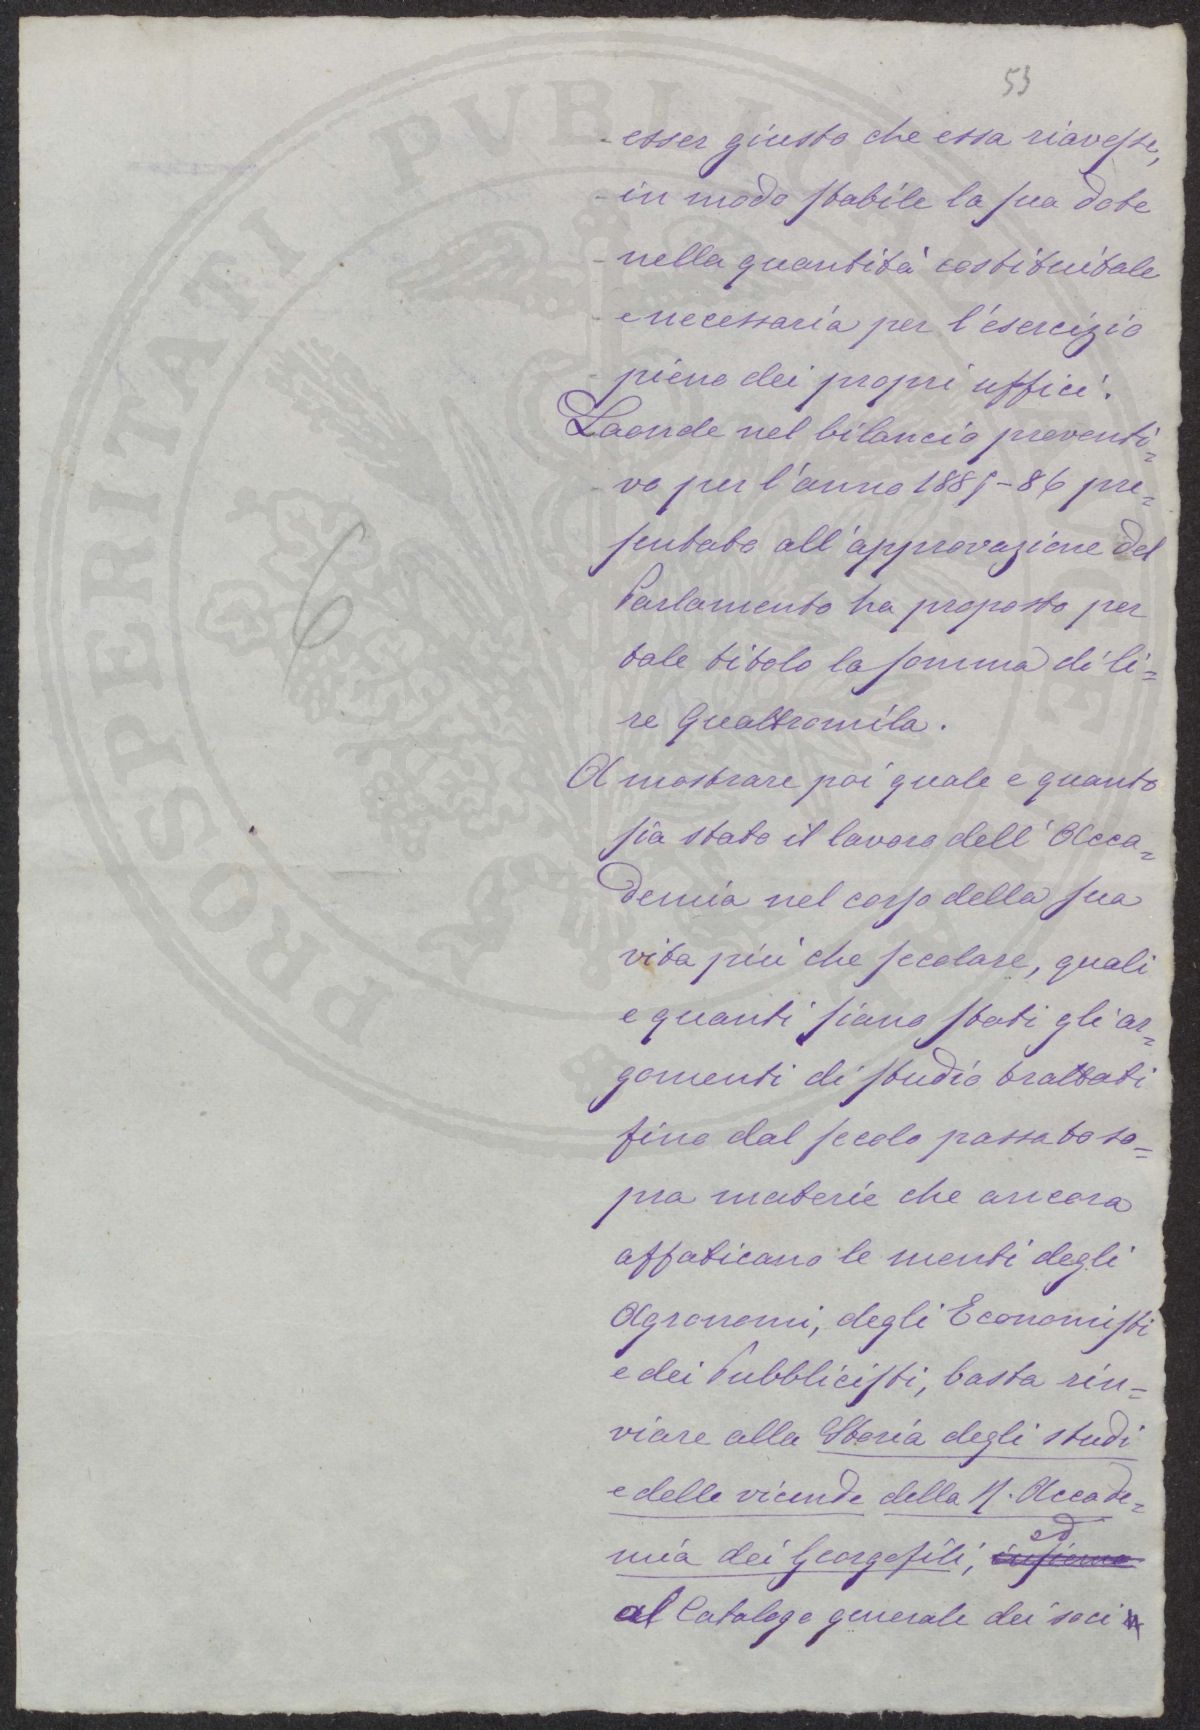 53
esser giusto che essa riavesse,
in modo stabile la sua dote
nella quantità costituitale
e necessaria per l'esercizio
pieno dei propri uffici.
Laonde nel bilancio preventi=
vo per l'anno 1885-86 pre=
sentato all'approvazione del
Parlamento ha proposto per
tale titolo la somma di li=
re Quattromila.
A mostrare poi quale e quanto
sia stato il lavoro dell'Acca=
demia nel corso della sua
vita più che secolare, quali
e quanti siano stati gli ar=
gomenti di studio trattati
fino dal secolo passato so=
pra materie che ancora
affaticano le menti degli
Agronomi, degli Economisti
e dei Pubblicisti, basta rin=
viare alla Storia degli studi
e delle vicende della R. Accade=
mia dei Georgofili, insieme ed
al Catalogo generale dei soci
6
PROSPERITATI PUBLICAE AUGENDAE